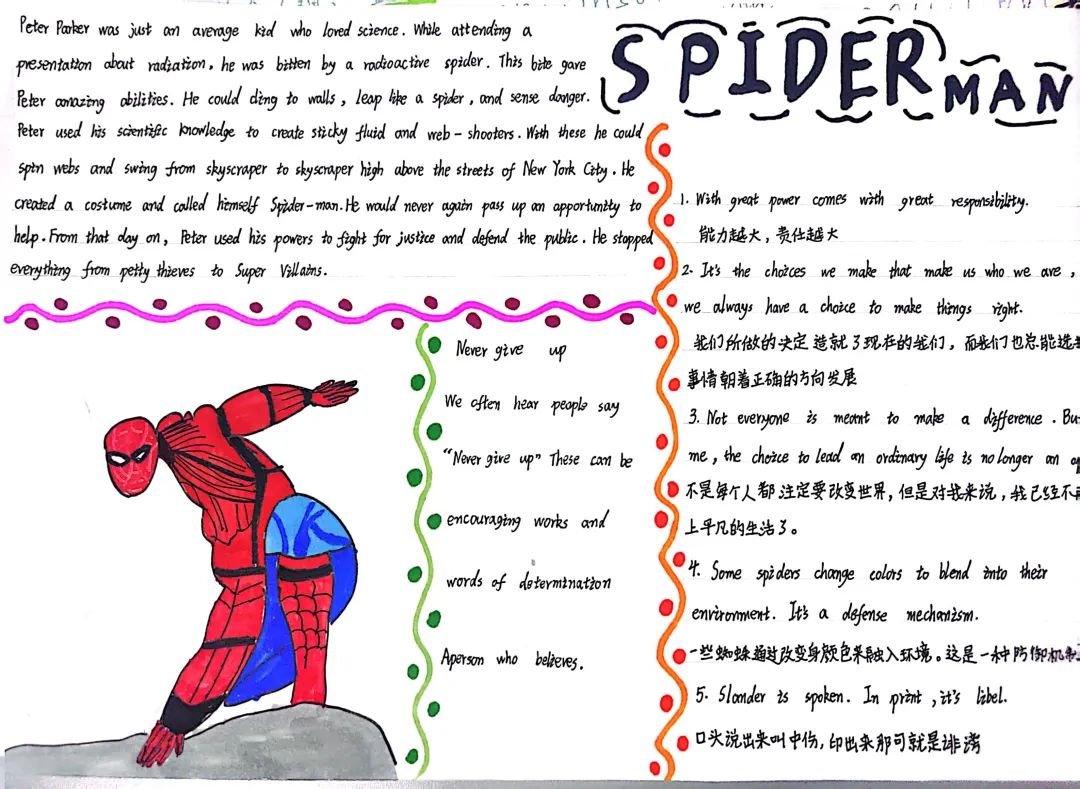 SPIDER MAN
Peter Parker was just an average kid who loved science. While attending a
presentation about radiation, he was bitten by a radioactive spider. This bite gave
Peter amazing abilities. He could cling to walls, leap like a spider, and sense danger.
Peter used his scientific knowledge to create sticky fluid and web-shooters. With these he could
spin webs and swing from skyscraper to skyscraper high above the streets of New York City. He
created a costume and called himself Spider-man. He would never again pass up an opportunity to
help. From that day on, Peter used his powers to fight for justice and defend the public. He stopped
everything from petty thieves to Super Villains.
Never give up
We often hear people say
“Never give up” These can be
encouraging works and
words of determination
Aperson who believes.
1. With great power comes with great responsibility.
能力越大，责任越大
2. It's the choices we make that make us who we are,
we always have a choice to make things right.
我们所做的决定造就了现在的我们，而我们也总能选
事情朝着正确的方向发展
3. Not everyone is meant to make a difference. Bu
me, the choice to lead an ordinary life is no longer an
不是每个人都注定要改变世界，但是对我来说，我已经不
上平凡的生活了。
4. Some spiders change colors to blend into their
environment. It's a defense mechanism.
一些蜘蛛通过改变身颜色来融入环境。这是一种防御机制
5. Slander is spoken. In print, it's label.
口头说出来叫中伤，印出来那可就是诽谤